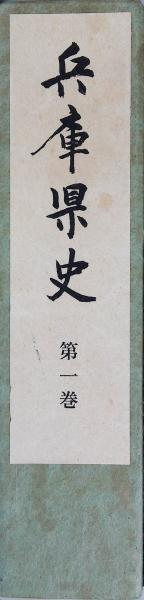 兵庫県史
第一巻